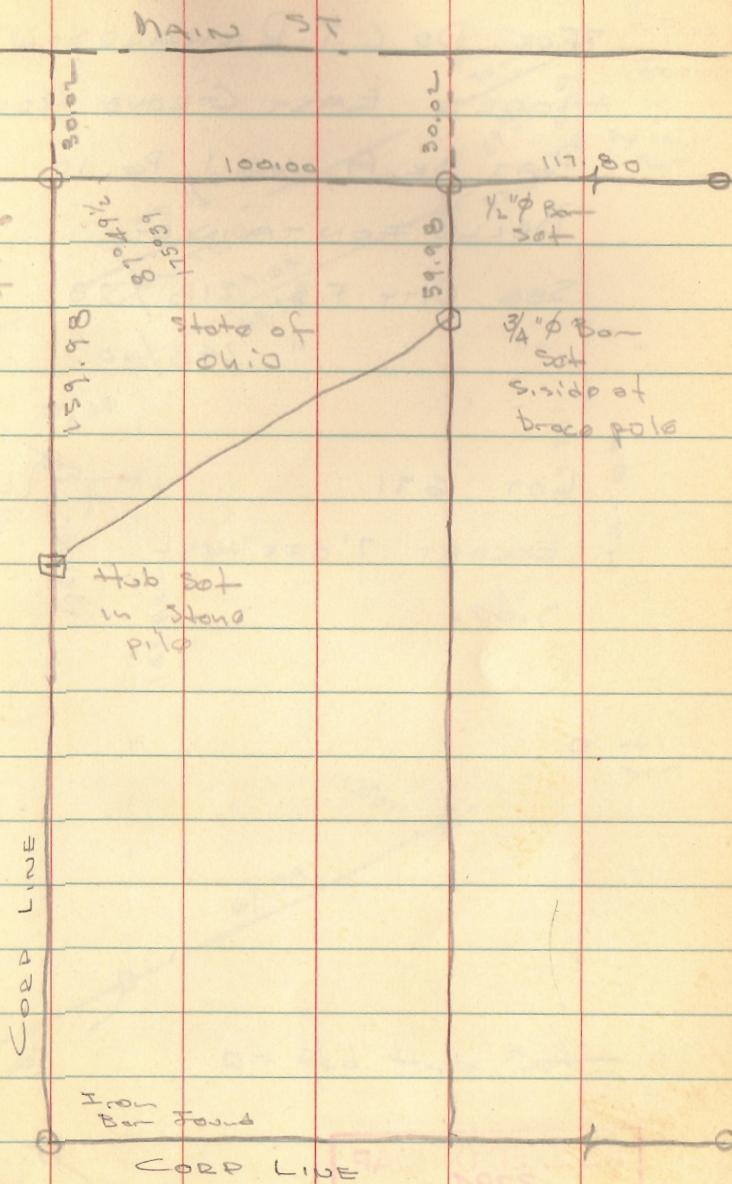 MAIN ST
30.02
30.02
100.00
117.80
87°49½
175°39
1/2"Ø Bar
Set
59.98
159.98
State of
Ohio
3/4"Ø Bar
Set
S. side of
brace pole
Hub Set
in Stone
pile
CORP LINE
Iron
Bar Found
CORP LINE